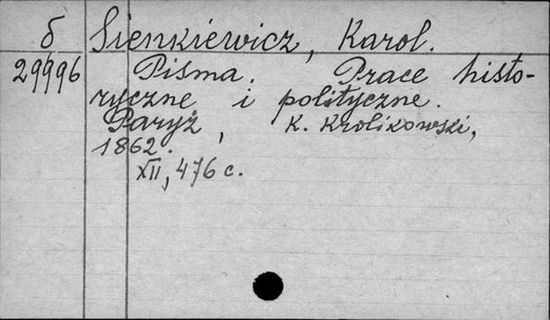 б Sienkiewicz, Karol.
29996 Pisma. Prace histo-
ryczne i polityczne.
Paryż, K. Krolikowski,
1862.
XII, 476 c.